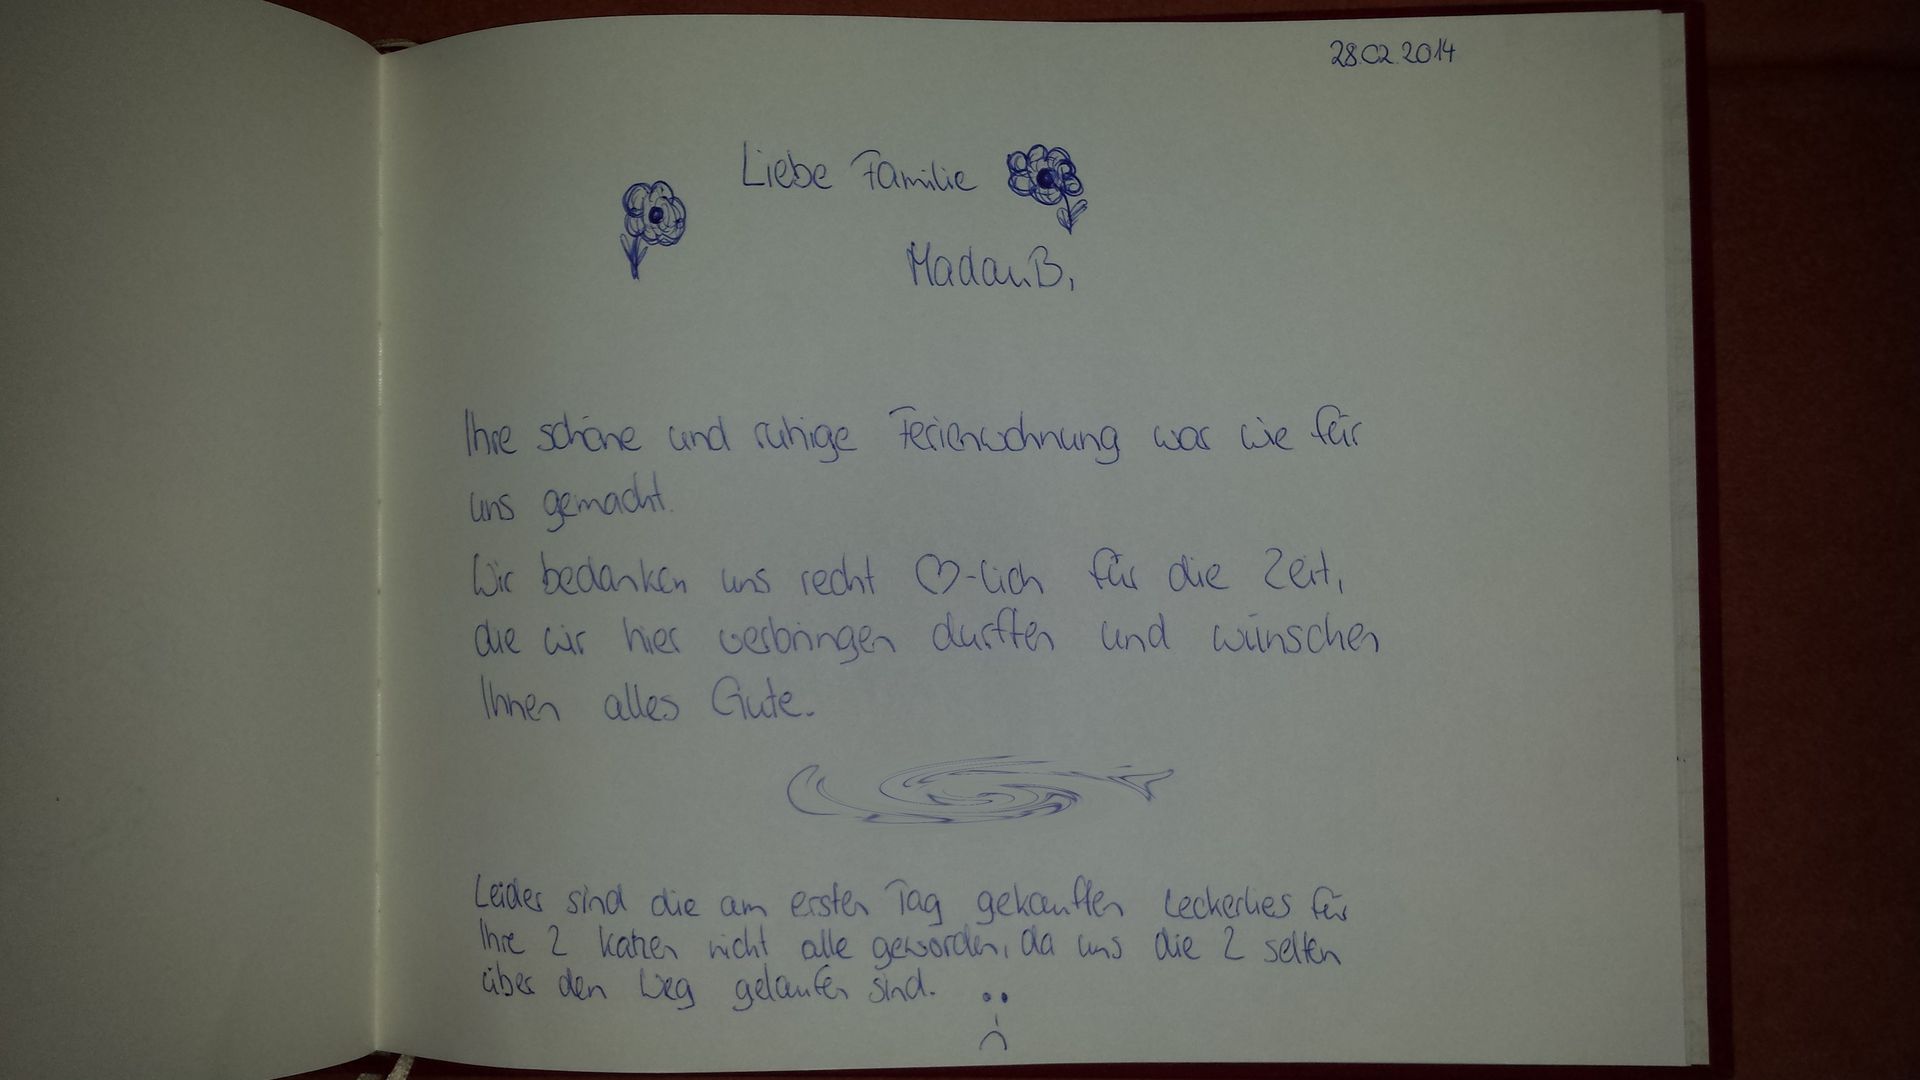 28.02.2014
Liebe Familie
Madau.B,
Ihre schöne und ruhige Ferienwohnung war wie für
uns gemacht.
Wir bedanken uns recht ♡-lich für die Zeit,
die wir hier verbringen durften und wünschen
Ihnen alles Gute.
Leider sind die am ersten Tag gekauften Leckerlies für
Ihre 2 Katzen nicht alle geworden, da uns die 2 selten
über den Weg gelaufen sind.